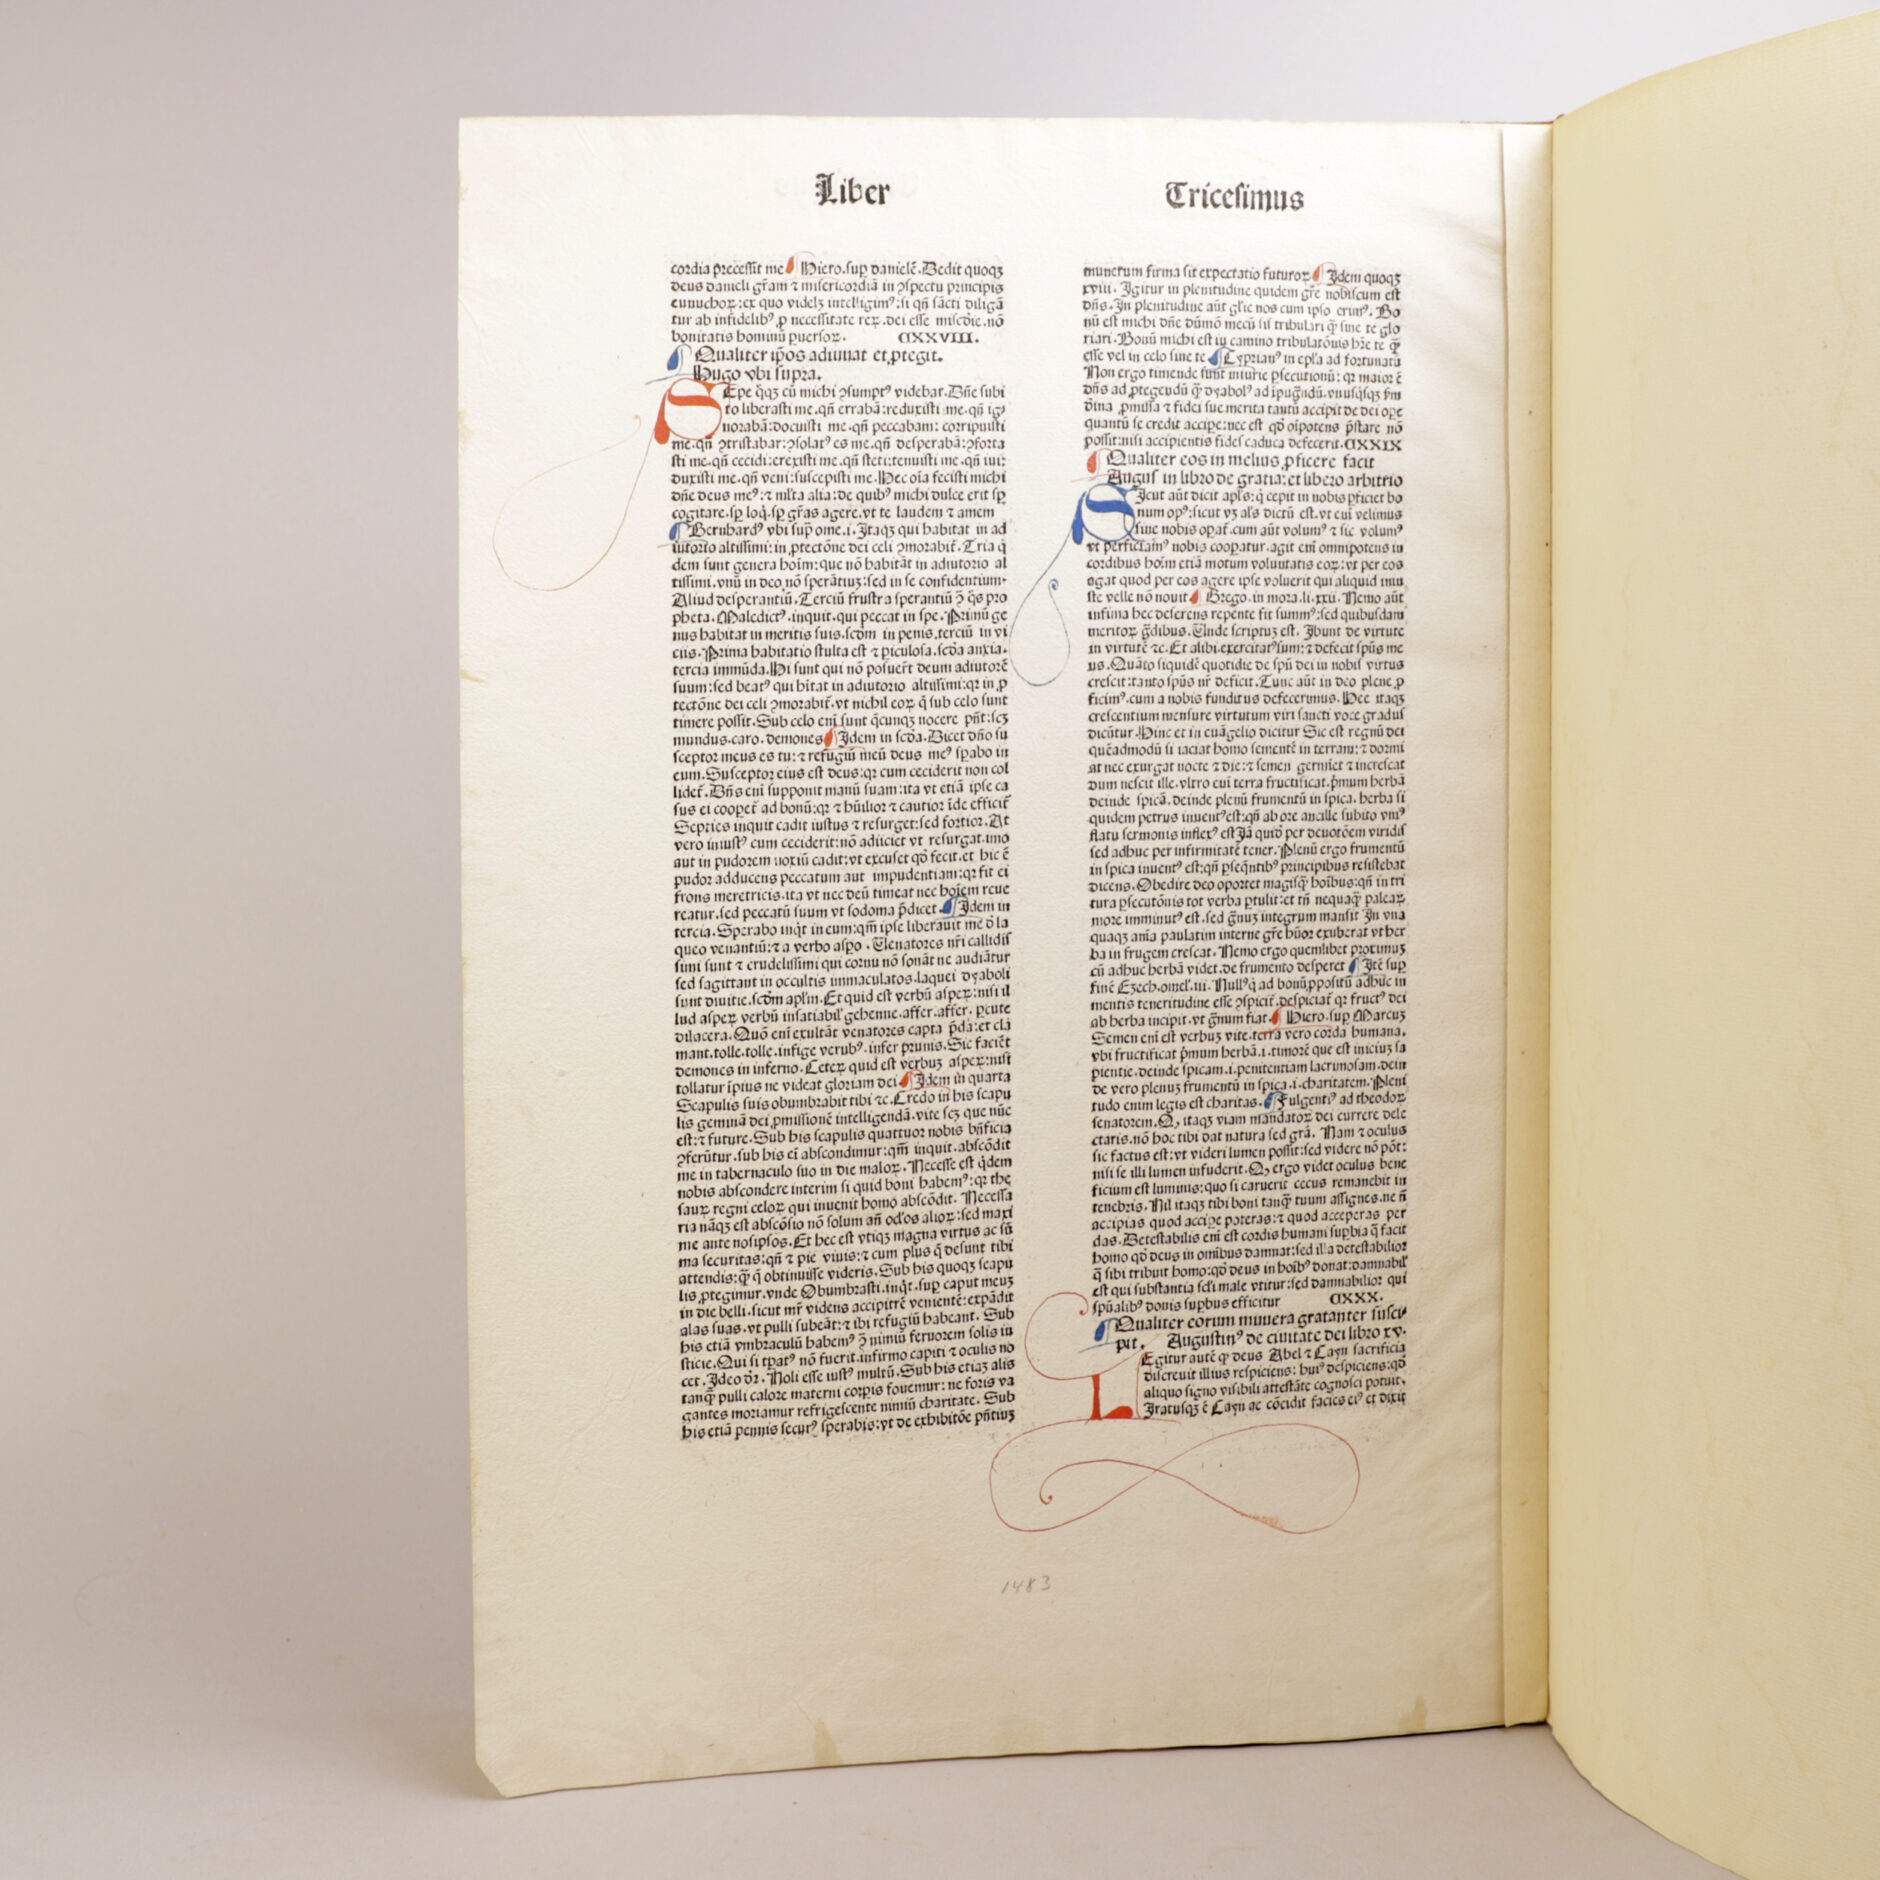 Liber
Tricesimus
cordia p̄cessit me Hiero.sup danielē.Dedit quoqꝫ
deus danieli gr̄am ⁊ misericordiā in ɔspectu principis
eunuchoꝝ:ex quo videlꝫ intelligimꝰ:si qn̄ sācti diligā
tur ab infidelibꝰ ꝓ necessitate reꝝ.dei esse misc̄die.nō
bonitatis hominū ꝑuersoꝝ. CXXVIII.
Qualiter ip̄os adiuuat et ꝓtegit.
Hugo vbi supra.
SEpe q̄qꝫ cū michi ɔsumptꝰ videbar.Dn̄e subi
to liberasti me.qn̄ errabā:reduxisti me.qn̄ ig
norabā:docuisti me.qn̄ peccabam: corripuisti
me.qn̄ ɔtristabar:ɔsolatꝰ es me.qn̄ desperabā:ɔforta
sti me.qn̄ cecidi:erexisti me.qn̄ steti:tenuisti me.qn̄ iui:
duxisti me.qn̄ veni:suscepisti me.Hec oīa fecisti michi
dn̄e deus meꝰ:⁊ ml̄ta alia:de quibꝰ michi dulce erit sꝑ
cogitare.sꝑ loq̄.sꝑ gr̄as agere.vt te laudem ⁊ amem
Bernhardꝰ vbi sup̄ ome.i.Itaqꝫ qui habitat in ad
iutorio altissimi:in ꝓtectōne dei celi ɔmorabit̄.Tria q̄
dem sunt genera hoīm:que nō habitāt in adiutorio al
tissimi.vnū in deo nō sperātiuꝫ:sed in se confidentium.
Aliud desperantiū.Terciū frustra sperantiū ɔ̄ q̄s pro
pheta.Maledictꝰ.inquit.qui peccat in spe.Primū ge
nus habitat in meritis suis.scd̄m in penis.terciū in vi
ciis.Prima habitatio stulta est ⁊ ꝑiculosa.scd̄a anxia.
tercia immūda.Hi sunt qui nō posuer̄t deum adiutorē
suum:sed beatꝰ qui hītat in adiutorio altissimi:qꝛ in ꝓ
tectōne dei celi ɔmorabit̄.vt nichil eoꝝ q̄ sub celo sunt
timere possit.Sub celo eni sunt q̄cunqꝫ nocere pn̄t:scꝫ
mundus.caro.demones Idem in scd̄a.Dicet dn̄o su
sceptor meus es tu:⁊ refugiū meū deus meꝰ sꝑabo in
eum.Susceptor eius est deus:qꝛ cum ceciderit non col
lidet̄.Dn̄s eni supponit manū suam:ita vt etiā ipse ca
sus ei cooꝑet̄ ad bonū:qꝛ ⁊ hūilior ⁊ cautior īde efficit̄
Septies inquit cadit iustus ⁊ resurget:sed fortior.At
vero iniustꝰ cum ceciderit:nō adiiciet vt resurgat.imo
aut in pudorem noxiū cadit:vt excuset qd̄ fecit.et hic ē
pudor adducens peccatum aut impudentiam:qꝛ fit ei
frons meretricis.ita vt nec deū timeat nec hoīem reue
reatur.sed peccatū suum vt sodoma p̄dicet Idem in
tercia.Sperabo inq̄t in eum:qm̄ ipse liberauit me d̄ la
queo venantiū:⁊ a verbo asꝑo.Uenatores nr̄i callidis
simi sunt ⁊ crudelissimi qui cornu nō sonāt ne audiātur
sed sagittant in occultis immaculatos.laquei dyaboli
sunt diuitie.scd̄m apl̄m.Et quid est verbū asꝑꝝ:nisi il
lud asꝑꝝ verbū insatiabil̄ gehenne.affer.affer.ꝑcute
dilacera.Quō eni exultāt venatores capta p̄da:et cla
mant.tolle.tolle.infige verubꝰ.infer prunis.Sic faciēt
demones in inferno.Ceteꝝ quid est verbuꝫ asꝑꝝ:nisi
tollatur īpius ne videat gloriam dei Idem in quarta
Scapulis suis obumbrabit tibi ⁊c.Credo in his scapu
lis geminā dei ꝓmissionē intelligendā.vite scꝫ que nūc
est:⁊ future.Sub his scapulis quattuor nobis bn̄ficia
ɔferūtur.sub his ei abscondimur:qm̄ inquit.abscōdit
me in tabernaculo suo in die maloꝝ.Necesse est q̄dem
nobis abscondere interim si quid boni habemꝰ:qꝛ the
sauꝝ regni celoꝝ qui inuenit homo abscōdit. Necessa
ria nāqꝫ est abscōsio nō solum an̄ oc̄los alioꝝ:sed maxi
me ante nosipsos.Et hec est vtiqꝫ magna virtus ac sū
ma securitas:qn̄ ⁊ pie viuis:⁊ cum plus q̄ desunt tibi
attendis:q̄ꝫ q̄ obtinuisse videris.Sub his quoqꝫ scapu
lis ꝓtegimur.vnde Obumbrasti.inq̄t.suꝑ caput meuꝫ
in die belli.sicut mr̄ videns accipitrē venientē:expādit
alas suas.vt pulli subeāt:⁊ ibi refugiū habeant. Sub
his etiā vmbraculū habemꝰ ɔ̄ nimiū feruorem solis iu
sticie.Qui si tꝑatꝰ nō fuerit.infirmo capiti ⁊ oculis no
cet.Ideo dr̄.Noli esse iustꝰ multū.Sub his etiaꝫ alis
tanq̄ꝫ pulli calore materni corꝑis fouemur: ne foris va
gantes moriamur refrigescente nimiū charitate. Sub
his etiā pennis securꝰ sperabis:vt de exhibitōe pn̄tiuꝫ
munerum firma sit expectatio futuroꝝ Idem quoqꝫ
xviii. Igitur in plenitudine quidem gr̄e nobiscum est
dn̄s.In plenitudine aūt gl̄ie nos cum ipso erimꝰ. Bo
nū est michi dn̄e dūmō mecū sis tribulari q̄ꝫ sine te glo
riari.Bonū michi est in camino tribulatōnis hr̄e te q̄ꝫ
esse vel in celo sine te Cyprianꝰ in epl̄a ad fortunatū
Non ergo timende sunt iniurie ꝑsecutionū: qꝛ maior ē
dn̄s ad ꝓtegendū q̄ꝫ dyabolꝰ ad īpugnādū.vnusq̄sqꝫ
dn̄ina ꝓmissa ⁊ fidei sue merita tantū accipit de dei ope
quantū se credit accipe:nec est qd̄ oīpotens p̄stare nō
possit:nisi accipientis fides caduca defecerit.CXXIX
Qualiter eos in melius ꝓficere facit
Augusꝰ in libro de gratia:et libero arbitrio
SIcut aūt dicit apl̄s:q̄ cepit in nobis ꝑficiet bo
num opꝰ:sicut vꝫ al̄s dictū est.vt eni velimus
sine nobis oꝑat̄.cum aūt volumꝰ ⁊ sic volumꝰ
vt perficiamꝰ nobis cooꝑatur.agit eni omnipotens in
cordibus hoīm etiā motum voluntatis eoꝝ:vt per eos
agat quod per eos agere ipse voluerit qui aliquid iniu
ste velle nō nouit Grego.in mora.li.xxii. Nemo aūt
infima hec deserens repente fit summꝰ:sed quibusdam
meritoꝝ gd̄ibus.Unde scriptuꝫ est. Ibunt de virtute
in virtutē ⁊c.Et alibi.exercitatꝰ sum:⁊ defecit sp̄us me
us.Quāto siquidē quotidie de sp̄u dei in nobis virtus
crescit:tanto sp̄us nr̄ deficit.Tunc aūt in deo plene ꝓ
ficimꝰ.cum a nobis funditus defecerimus. Hec itaqꝫ
crescentium mensure virtutum viri sancti voce gradus
dicūtur.Hinc et in euāgelio dicitur Sic est regnū dei
quēadmodū si iaciat homo sementē in terram:⁊ dormi
at nec exurgat nocte ⁊ die:⁊ semen germiet ⁊ increscat
dum nescit ille.vltro eni terra fructificat.p̄mum herbā
deinde spicā.deinde plenū frumentū in spica.herba si
quidem petrus inuentꝰ est:qn̄ ab ore ancille subito vniꝰ
flatu sermonis inflexꝰ est Iā quid̄ per deuotōem viridis
sed adhuc per infirmitatē tener.Plenū ergo frumentū
in spica inuentꝰ est:qn̄ ꝑseq̄ntibꝰ principibus resistebat
dicens.Obedire deo oportet magisq̄ꝫ hoībus:qn̄ in tri
tura ꝑsecutōnis tot verba ꝑtulit:et tn̄ nequaq̄ꝫ paleaꝝ
more imminutꝰ est.sed ḡnuꝫ integrum mansit In vna
quaqꝫ aīa paulatim interne gr̄e hūor exuberat vt her
ba in frugem crescat.Nemo ergo quemlibet proximuꝫ
cū adhuc herbā videt.de frumento desperet Itē suꝑ
finē Ezech.omel̄.iii.Nullꝰ q̄ ad bonū ꝓpositū adhuc in
mentis teneritudine esse ɔspicit̄.despiciat̄ qꝛ fructꝰ dei
ab herba incipit.vt ḡnum fiat. Hiero.suꝑ Marcuꝫ
Semen eni est verbuꝫ vite.terra vero corda humana.
vbi fructificat p̄mum herbā.i.timorē que est iniciuꝫ sa
pientie.deinde spicam.i.penitentiam lacrimosam.dein
de vero plenuꝫ frumentū in spica.i.charitatem.Pleni
tudo enim legis est charitas. Fulgentiꝰ ad theodoꝝ
senatorem.Qꝫ itaqꝫ viam mandatoꝝ dei currere dele
ctaris.nō hoc tibi dat natura sed gr̄a. Nam ⁊ oculus
sic factus est:vt videri lumen possit:sed videre nō pōt:
nisi se illi lumen infuderit.Qꝫ ergo videt oculus bene
ficium est luminis:quo si caruerit cecus remanebit in
tenebris.Nil itaqꝫ tibi boni tanq̄ꝫ tuum assignes.ne n̄
accipias quod accipe poteras:⁊ quod acceperas per
das.Detestabilis eni est cordis humani suꝑbia q̄ facit
homo qd̄ deus in omībus damnat:sed illa detestabilior
q̄ sibi tribuit homo:qd̄ deus in hoībꝰ donat:damnabil̄
est qui substantia scd̄i male vtitur:sed damnabilior qui
sp̄ualibꝰ donis suꝑbus efficitur CXXX.
Qualiter eorum munera gratanter susci
pit. Augustinꝰ de ciuitate dei libro xv.
LEgitur autē qꝫ deus Abel ⁊ Cayn sacrificia
discreuit illius respiciens: huiꝰ despiciens:qd̄
aliquo signo visibili attestāte cognosci potuit.
Iratusqꝫ ē Cayn ac cōcidit facies eiꝰ et dixit
1483